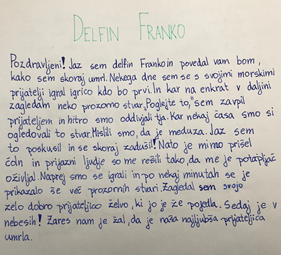 DELFIN FRANKO
Pozdravljeni! Jaz sem delfin Franko in povedal vam bom,
kako sem skoraj umrl. Nekega dne sem se s svojimi morskimi
prijatelji igral igrico kdo bo prvi. In kar na enkrat v daljini
zagledam neko prozorno stvar. "Poglejte to," sem zavpil
prijateljem in hitro smo oddivjali tja. Kar nekaj časa smo si
ogledovali to stvar. Mislili smo, da je meduza. Jaz sem
to poskusil in se skoraj zadušil! Nato je mimo prišel
čoln in prijazni ljudje so me rešili tako, da me je potapljač
oživljal. Naprej smo se igrali in po nekaj minutah se je
prikazalo še več prozornih stvari. Zagledal sem svojo
zelo dobro prijateljico želvo, ki jo je že pojedla. Sedaj je v
nebesih! Zares nam je žal, da je naša najljubša prijateljica
umrla.